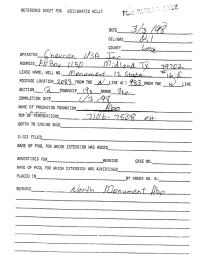 REFERENCE SHEET FOR UNDESIGNATED WELLS
DATE 3/3/98
OIL/GAS Oil
COUNTY Lea
OPERATOR Chevron USA Inc
ADDRESS PO Box 1150 Midland TX 79702
LEASE NAME, WELL NO. Monument 12 State #
FOOTAGE LOCATION, 2083 FROM THE N LINE AND 983 FROM THE W LINE
SECTION 12 TOWNSHIP 19s RANGE 36e
COMPLETION DATE 1/3/98
NAME OF PRODUCING FORMATION Abo
TOP OF PERFORATIONS 7106-7508 OH
DEPTH TO CASING SHOE
C-123 FILED
NAME OF POOL FOR WHICH EXTENSION WAS ASKED
ADVERTISED FOR HEARING CASE NO.
NAME OF POOL FOR WHICH EXTENSION WAS ADVERTISED
PLACED IN BY ORDER NO. R-
REMARKS North Monument Abo